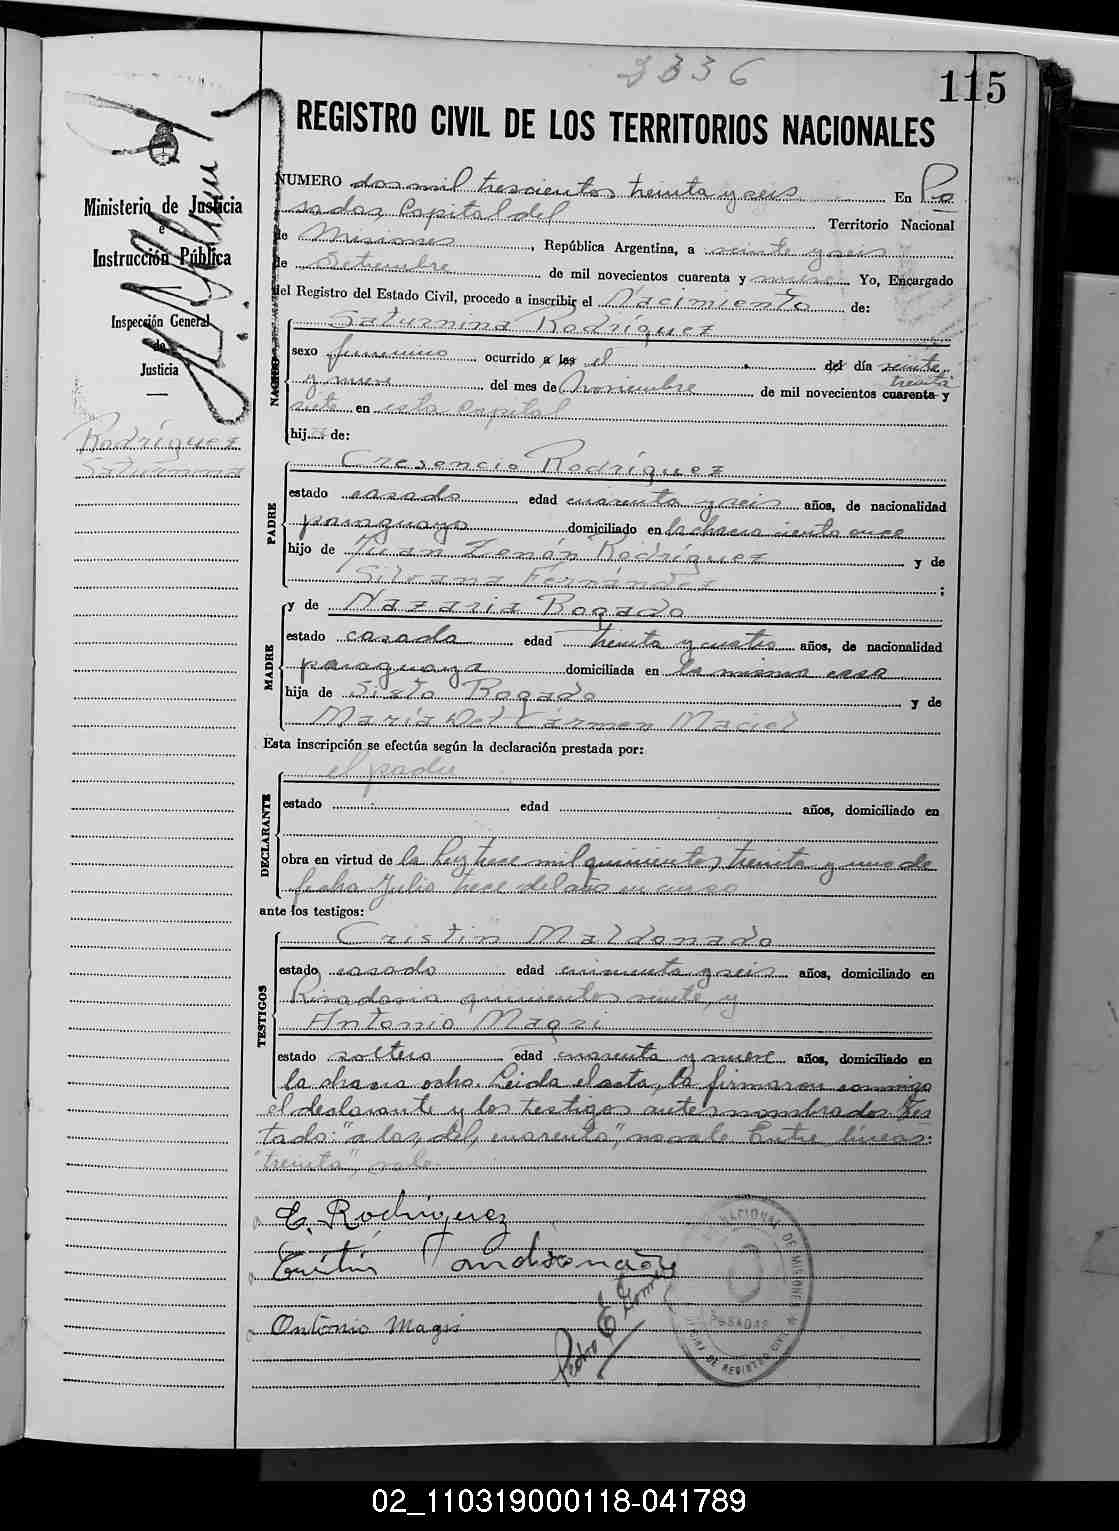 2336
115
REGISTRO CIVIL DE LOS TERRITORIOS NACIONALES
Ministerio de Justicia
e
Instrucción Pública
Inspección General
de
Justicia
Rodríguez
Saturnina
NUMERO dos mil trescientos treinta y seis En Po
sadas, Capital del Territorio Nacional
de Misiones, República Argentina, a veinte y seis
de Setiembre de mil novecientos cuarenta y nueve Yo, Encargado
del Registro del Estado Civil, procedo a inscribir el Nacimiento de:
NACIDO
Saturnina Rodríguez
sexo femenino ocurrido a las el del día veinte
treinta
y nueve del mes de Noviembre de mil novecientos cuarenta y
siete en esta Capital
hija de:
PADRE
Cresencio Rodríguez
estado casado edad cuarenta y seis años, de nacionalidad
paraguayo domiciliado en la chacra ciento once
hijo de Juan Zenón Rodríguez y de
Silvana Fernández ;
MADRE
y de Nazaria Rogado
estado casada edad treinta y cuatro años, de nacionalidad
paraguaya domiciliada en la misma casa
hija de Sixto Rogado y de
María Del Cármen Maciel
Esta inscripción se efectúa según la declaración prestada por:
DECLARANTE
el padre
estado edad años, domiciliado en
obra en virtud de la Ley trece mil quinientos treinta y uno de
fecha Julio trece del año en curso
ante los testigos:
TESTIGOS
Cristin Maldonado
estado casado edad cincuenta y seis años, domiciliado en
Rivadavia quinientos veinte, y
Antonio Magri
estado soltero edad cuarenta y nueve años, domiciliado en
la chacra ocho. Leida el acta, la firmaron conmigo
el declarante y los testigos antes nombrados. Tes
tado: "a las, del, cuarenta", no vale. Entre líneas:
"treinta", vale.
C. Rodriguez
Antonio Magri
Pedro E. Gomez
NACIONAL DE MISIONES
POSADAS
DE REGISTRO CIVIL
02_110319000118-041789